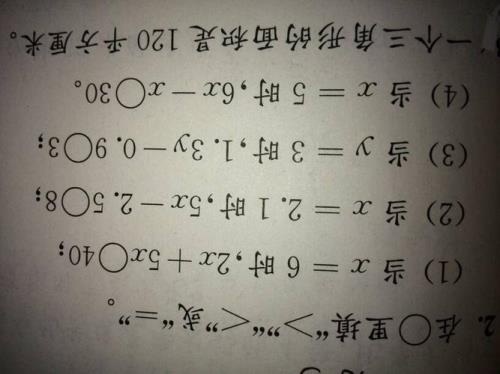 2. 在○里填“>”“<”或“=”。
(1) 当 x = 6 时,2x+5x○40;
(2) 当 x = 2.1 时,5x-2.5○8;
(3) 当 y = 3 时,1.3y-0.9○3;
(4) 当 x = 5 时,6x-x○30。
一个三角形的面积是 120 平方厘米。